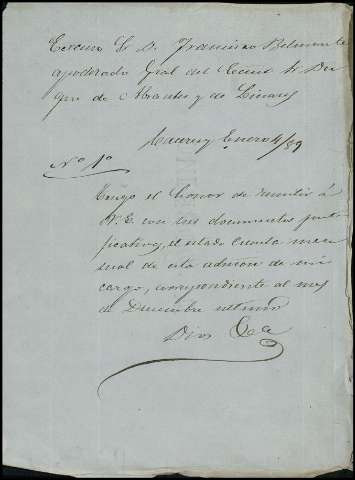 Excmo Sr. D. Francisco Belmonte
apoderado Gral del Excmo Sr. Du
que de Abrantes y de Linares
Enero 4/89
Nº 1º
Tengo el honor de remitir á
V. E. con sus documentos justi
ficativos, el estado Cuenta men
sual de esta admon de mi
cargo, correspondiente al mes
de Diciembre ultimo
Dios &a